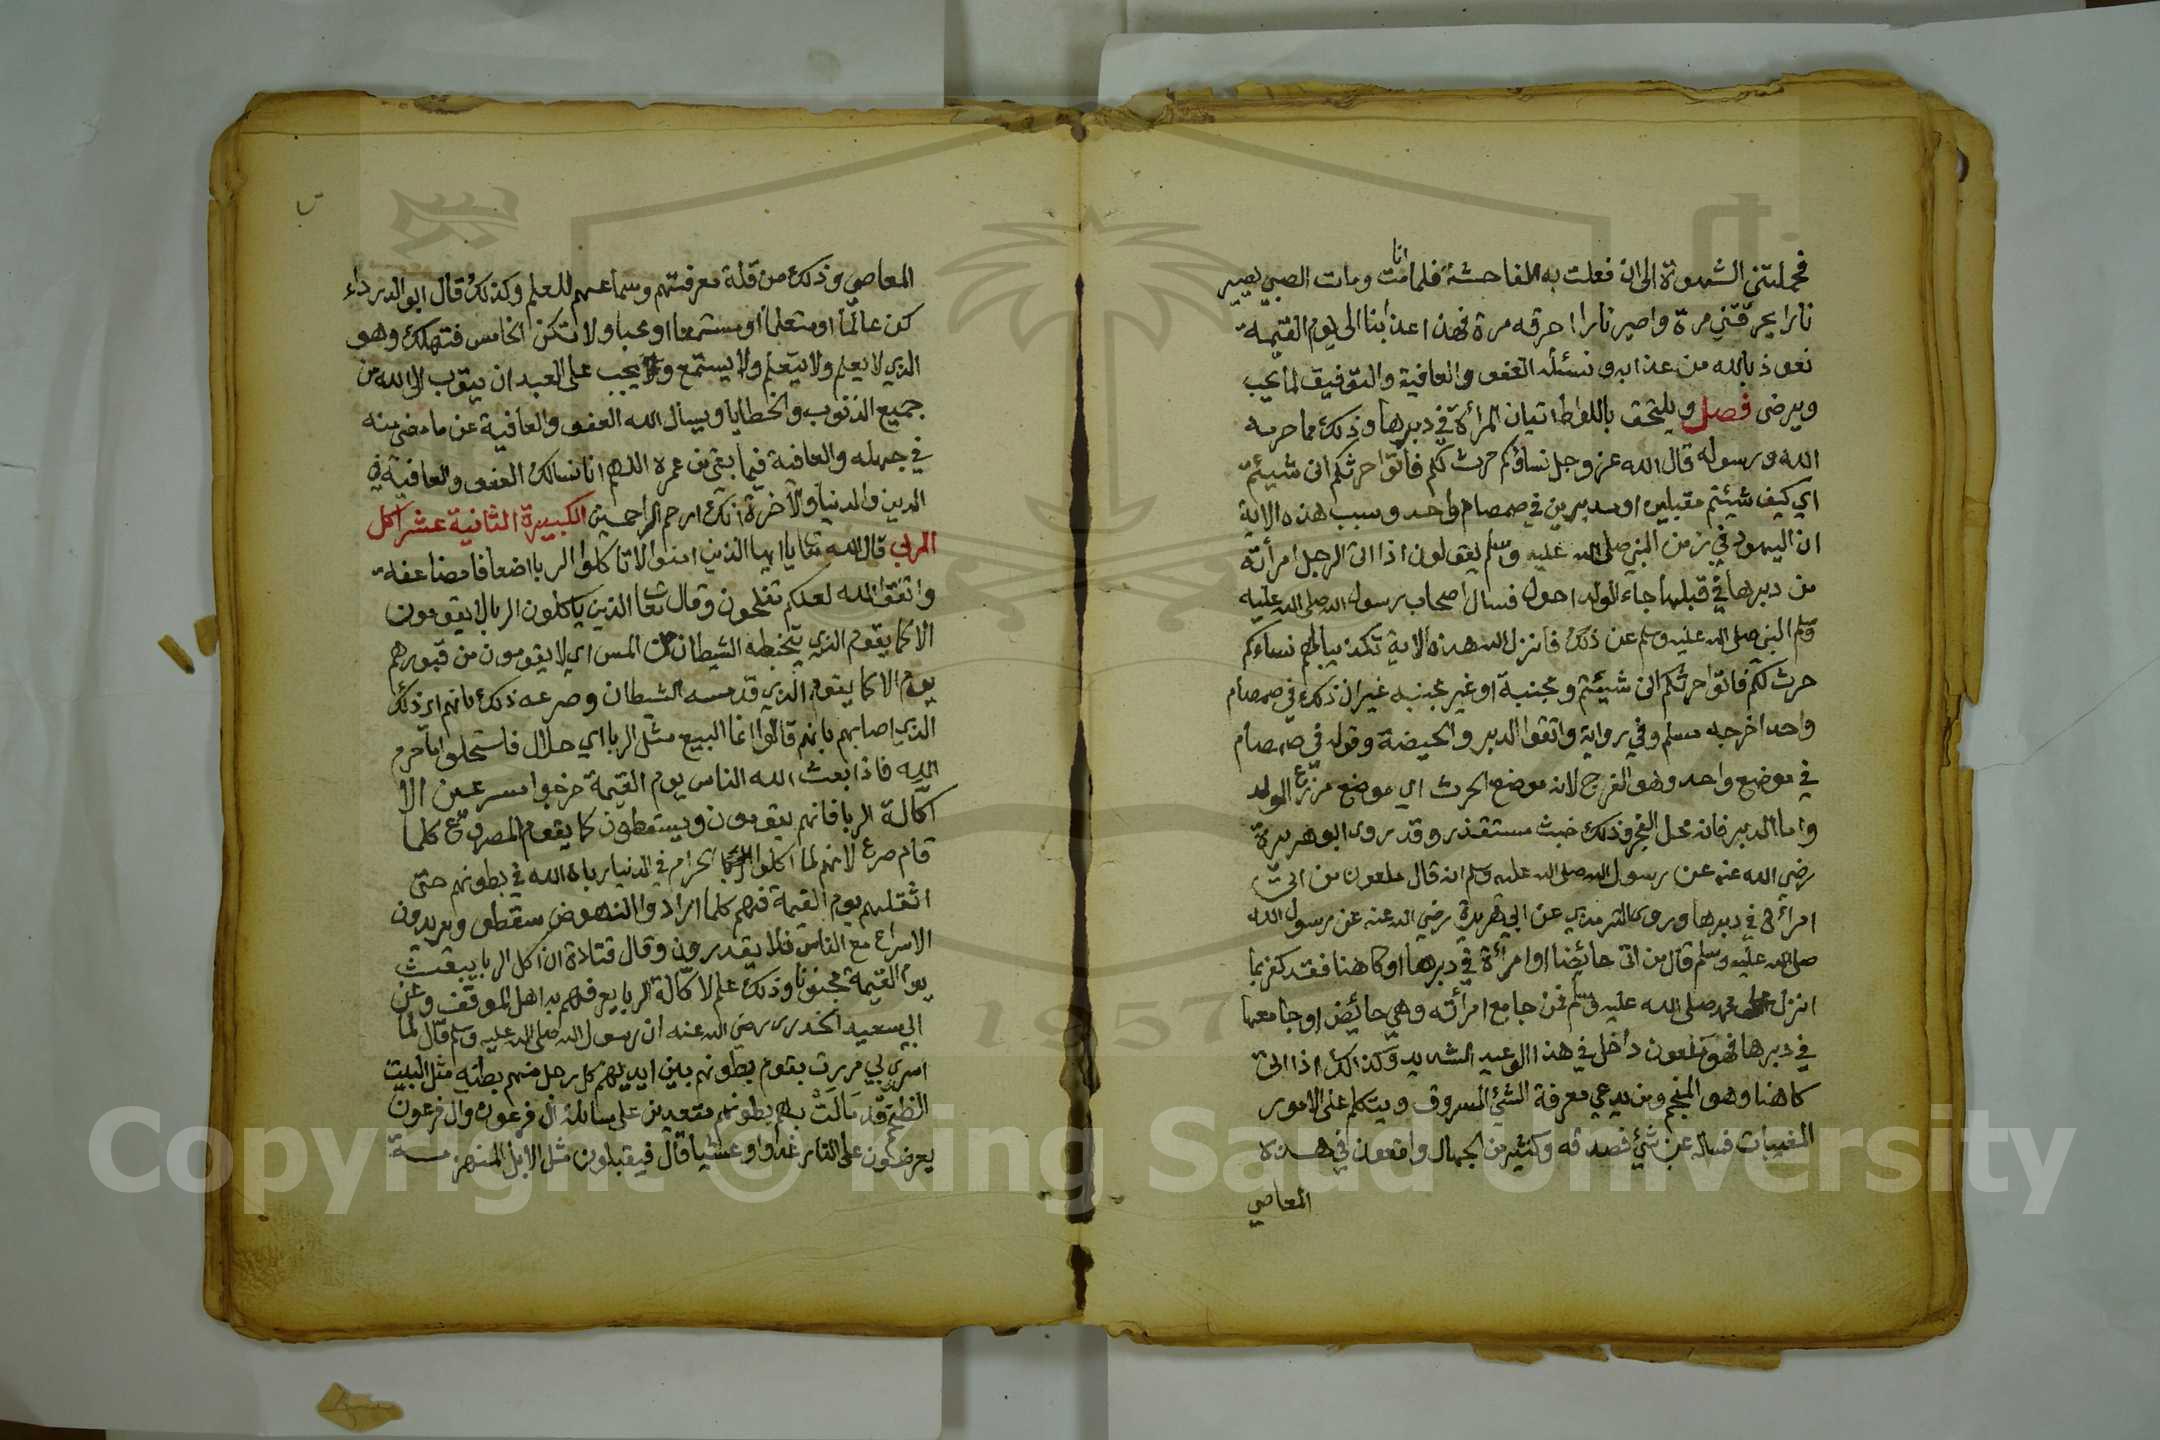 فحملتني الشهوة الى ان فعلت به الفاحشة فلما مت انا ومات الصبي يصير
نارا يحرقني مرة واصير نارا احرقه مرة فهذا عذابنا الى يوم القيمة
نعوذ بالله من عذابه ونسئله العفو والعافية والتوفيق لما يحب
ويرضى فصل ويلتحق باللواط اتيان المرأة في دبرها وذلك مما حرمه
الله ورسوله قال الله عز وجل نساؤكم حرث لكم فأتوا حرثكم انى شيئتم
اي كيف شيئتم مقبلين او مدبرين في صمصام واحد وسبب هذه الاية
ان اليهود في زمن النبي صلى الله عليه وسلم يقولون اذا اتى الرجل امرأته
من دبرها في قبلها جاء الولد احول فسال اصحاب رسول الله صلى الله عليه
وسلم النبي صلى الله عليه وسلم عن ذلك فانزل الله هذه الاية تكذيبا لهم نساءكم
حرث لكم فاتوا حرثكم انى شيئتم ومجنبة او غير مجنبه غير ان ذلك في صمصام
واحد اخرجه مسلم وفي رواية واتقوا الدبر والحيضة وقوله في صمصام
في موضع واحد وهو الفرج لانه موضع الحرث اي موضع مزرع الولد
واما الدبر فانه محل الفجر وذلك خبث مستقذر وقد روى ابو هريرة
رضي الله عنه عن رسول الله صلى الله عليه وسلم انه قال ملعون من اتى
امرأة في دبرها وروى الترمذي عن ابي هريرة رضي الله عنه عن رسول الله
صلى الله عليه وسلم قال من اتى حائضا او امرأة في دبرها او كاهنا فقد كفر بما
انزل على محمد صلى الله عليه وسلم فمن جامع امرأته وهي حائض او جامعها
في دبرها فهو ملعون داخل في هذا الوعيد الشديد وكذالك اذا اتى
كاهنا وهو المنجم ومن يدعي معرفة الشئ المسروق ويتكلم على الامور
المغيبات فساله عن شئ فصدقه وكثير من الجهال واقعون في هذه
المعاصي
المعاصي وذلك من قلة معرفتهم وسماعهم للعلم وكذلك قال ابو الدرداء
كن عالما او متعلما او مستمعا او محبا ولا تكن الخامس فتهلك وهو
الذي لا يعلم ولا يتعلم ولا يستمع ولا يجب على العبد ان يتوب الى الله من
جميع الذنوب والخطايا ويسال الله العفو والعافية عن ما مضى منه
في جهله والعافية فيما بقي من عمره اللهم انا نسالك العفو والعافية في
الدين والدنيا والآخرة انك ارحم الراحمين الكبيرة الثانية عشر اكل
الربى قال الله تعا يا ايها الذين امنوا لا تاكلوا الربا اضعافا مضاعفة
واتقوا الله لعلكم تفلحون وقال تعا الذين ياكلون الربا لا يقومون
الا كما يقوم الذي يتخبطه الشيطان من المس اي لا يقومون من قبورهم
يوم الا كما يقوم الذي قد مسه الشيطان وصرعه ذلك بانهم اي ذلك
الذي اصابهم بانهم قالوا انما البيع مثل الربا اي حلال فاستحلوا ما حرم
الله فاذا بعث الله الناس يوم القيمة خرجوا مسرعين الا
اكالة الربا فانهم يقومون ويسقطون كما يقوم المصروع كلما
قام صرع لانهم لما اكلوا الربا الحرام في الدنيا رباه الله في بطونهم حتى
اثقلهم يوم القيمة فهم كلما ارادوا النهوض سقطو ويريدون
الاسراع مع الناس فلا يقدرون وقال قتادة ان اكل الربا يبعث
يوم القيمة مجنونا وذلك علم لاكالة الربا يعرفهم به اهل الموقف وعن
ابي سعيد الخدري رضي الله عنه ان رسول الله صلى الله عليه وسلم قال لما
اسري بي مررت بقوم بطونهم بين ايديهم كل رجل منهم بطنه مثل البيت
الضخم قد مالت بهم بطونهم متعدين على سابلة ال فرعون وال فرعون
يعرضون على النار غدوا وعشيا قال فيقبلون مثل الابل المنهزمة
Copyright © King Saud University
1957